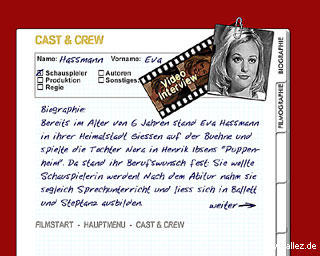 CAST & CREW
Name: Hassmann Vorname: Eva
Schauspieler Autoren
Produktion Sonstiges:
Regie
Video
Interview
BIOGRAPHIE
FILMOGRAPHIE
Biographie:
Bereits im Alter von 6 Jahren stand Eva Hassmann
in ihrer Heimatstadt Giessen auf der Buehne und
spielte die Tochter Nora in Henrik Ibsens "Puppen-
heim". Da stand ihr Berufswunsch fest: Sie wollte
Schauspielerin werden! Nach dem Abitur nahm sie
sogleich Sprechunterricht und liess sich in Ballett
und Steptanz ausbilden. weiter
FILMSTART - HAUPTMENU - CAST & CREW